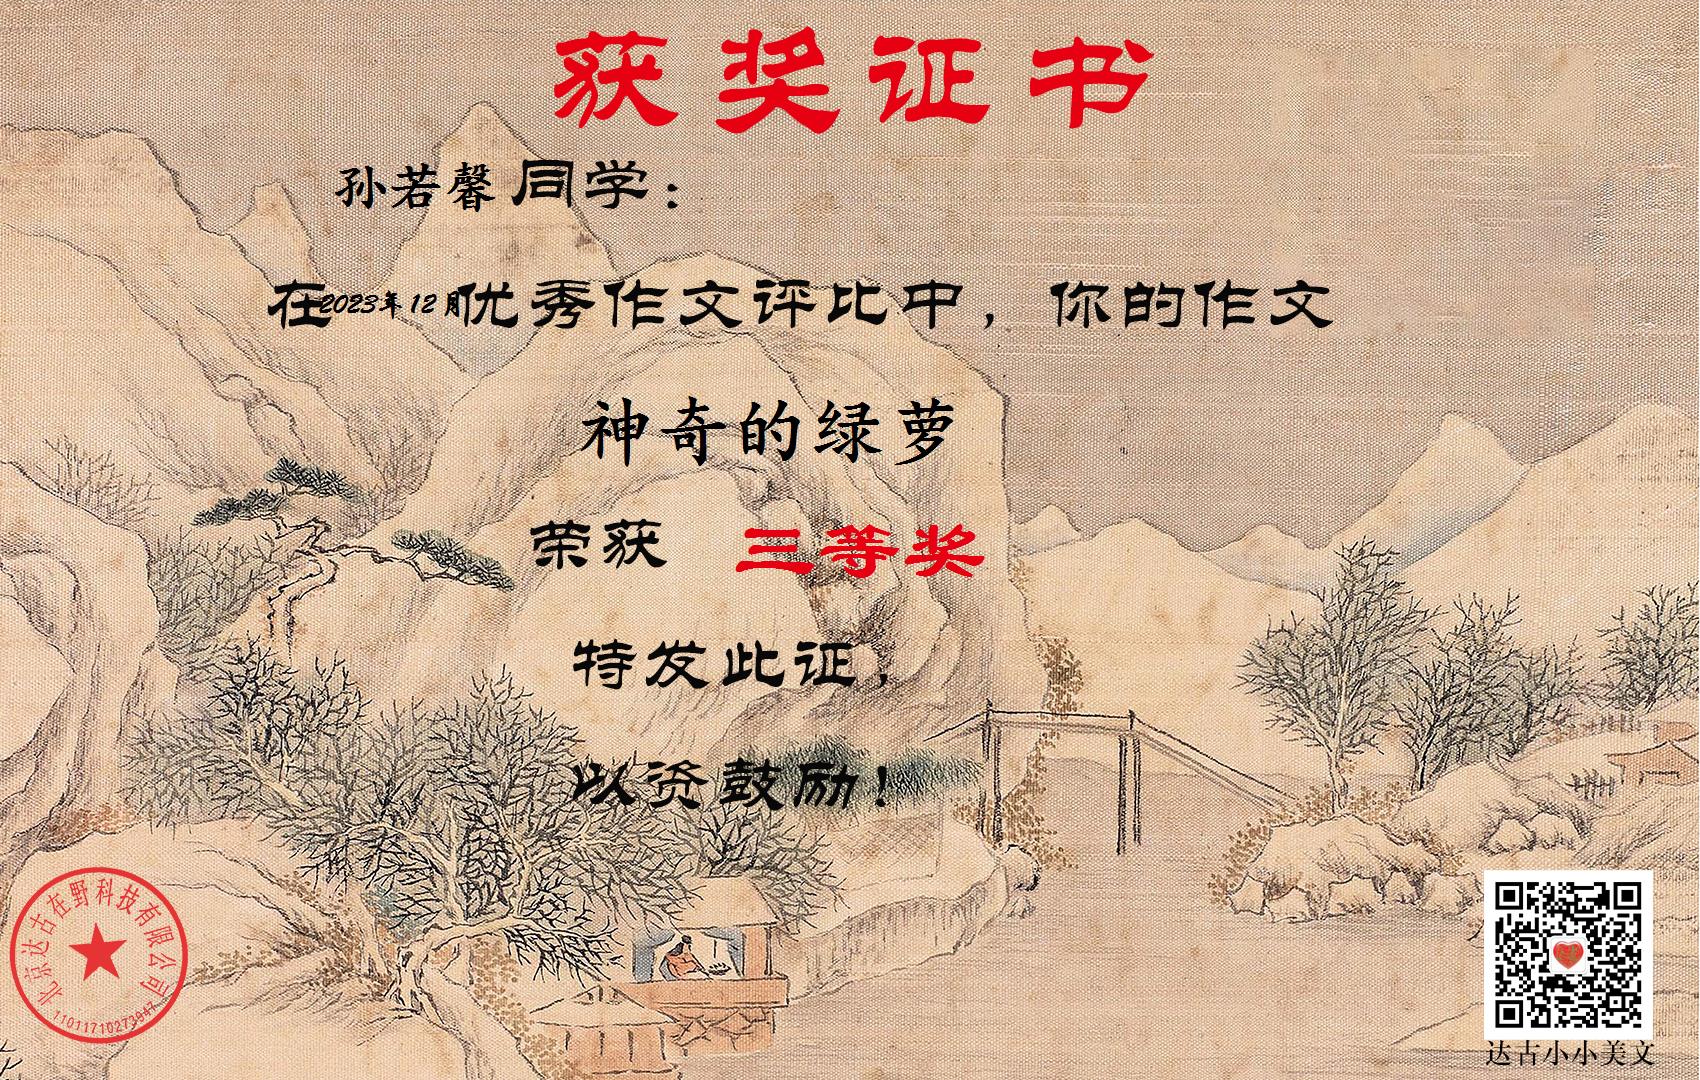 获奖证书
孙若馨同学：
在2023年12月优秀作文评比中，你的作文
神奇的绿萝
荣获 三等奖
特发此证，
以资鼓励！
北京达古在野科技有限公司
11011710273947
达古小小美文